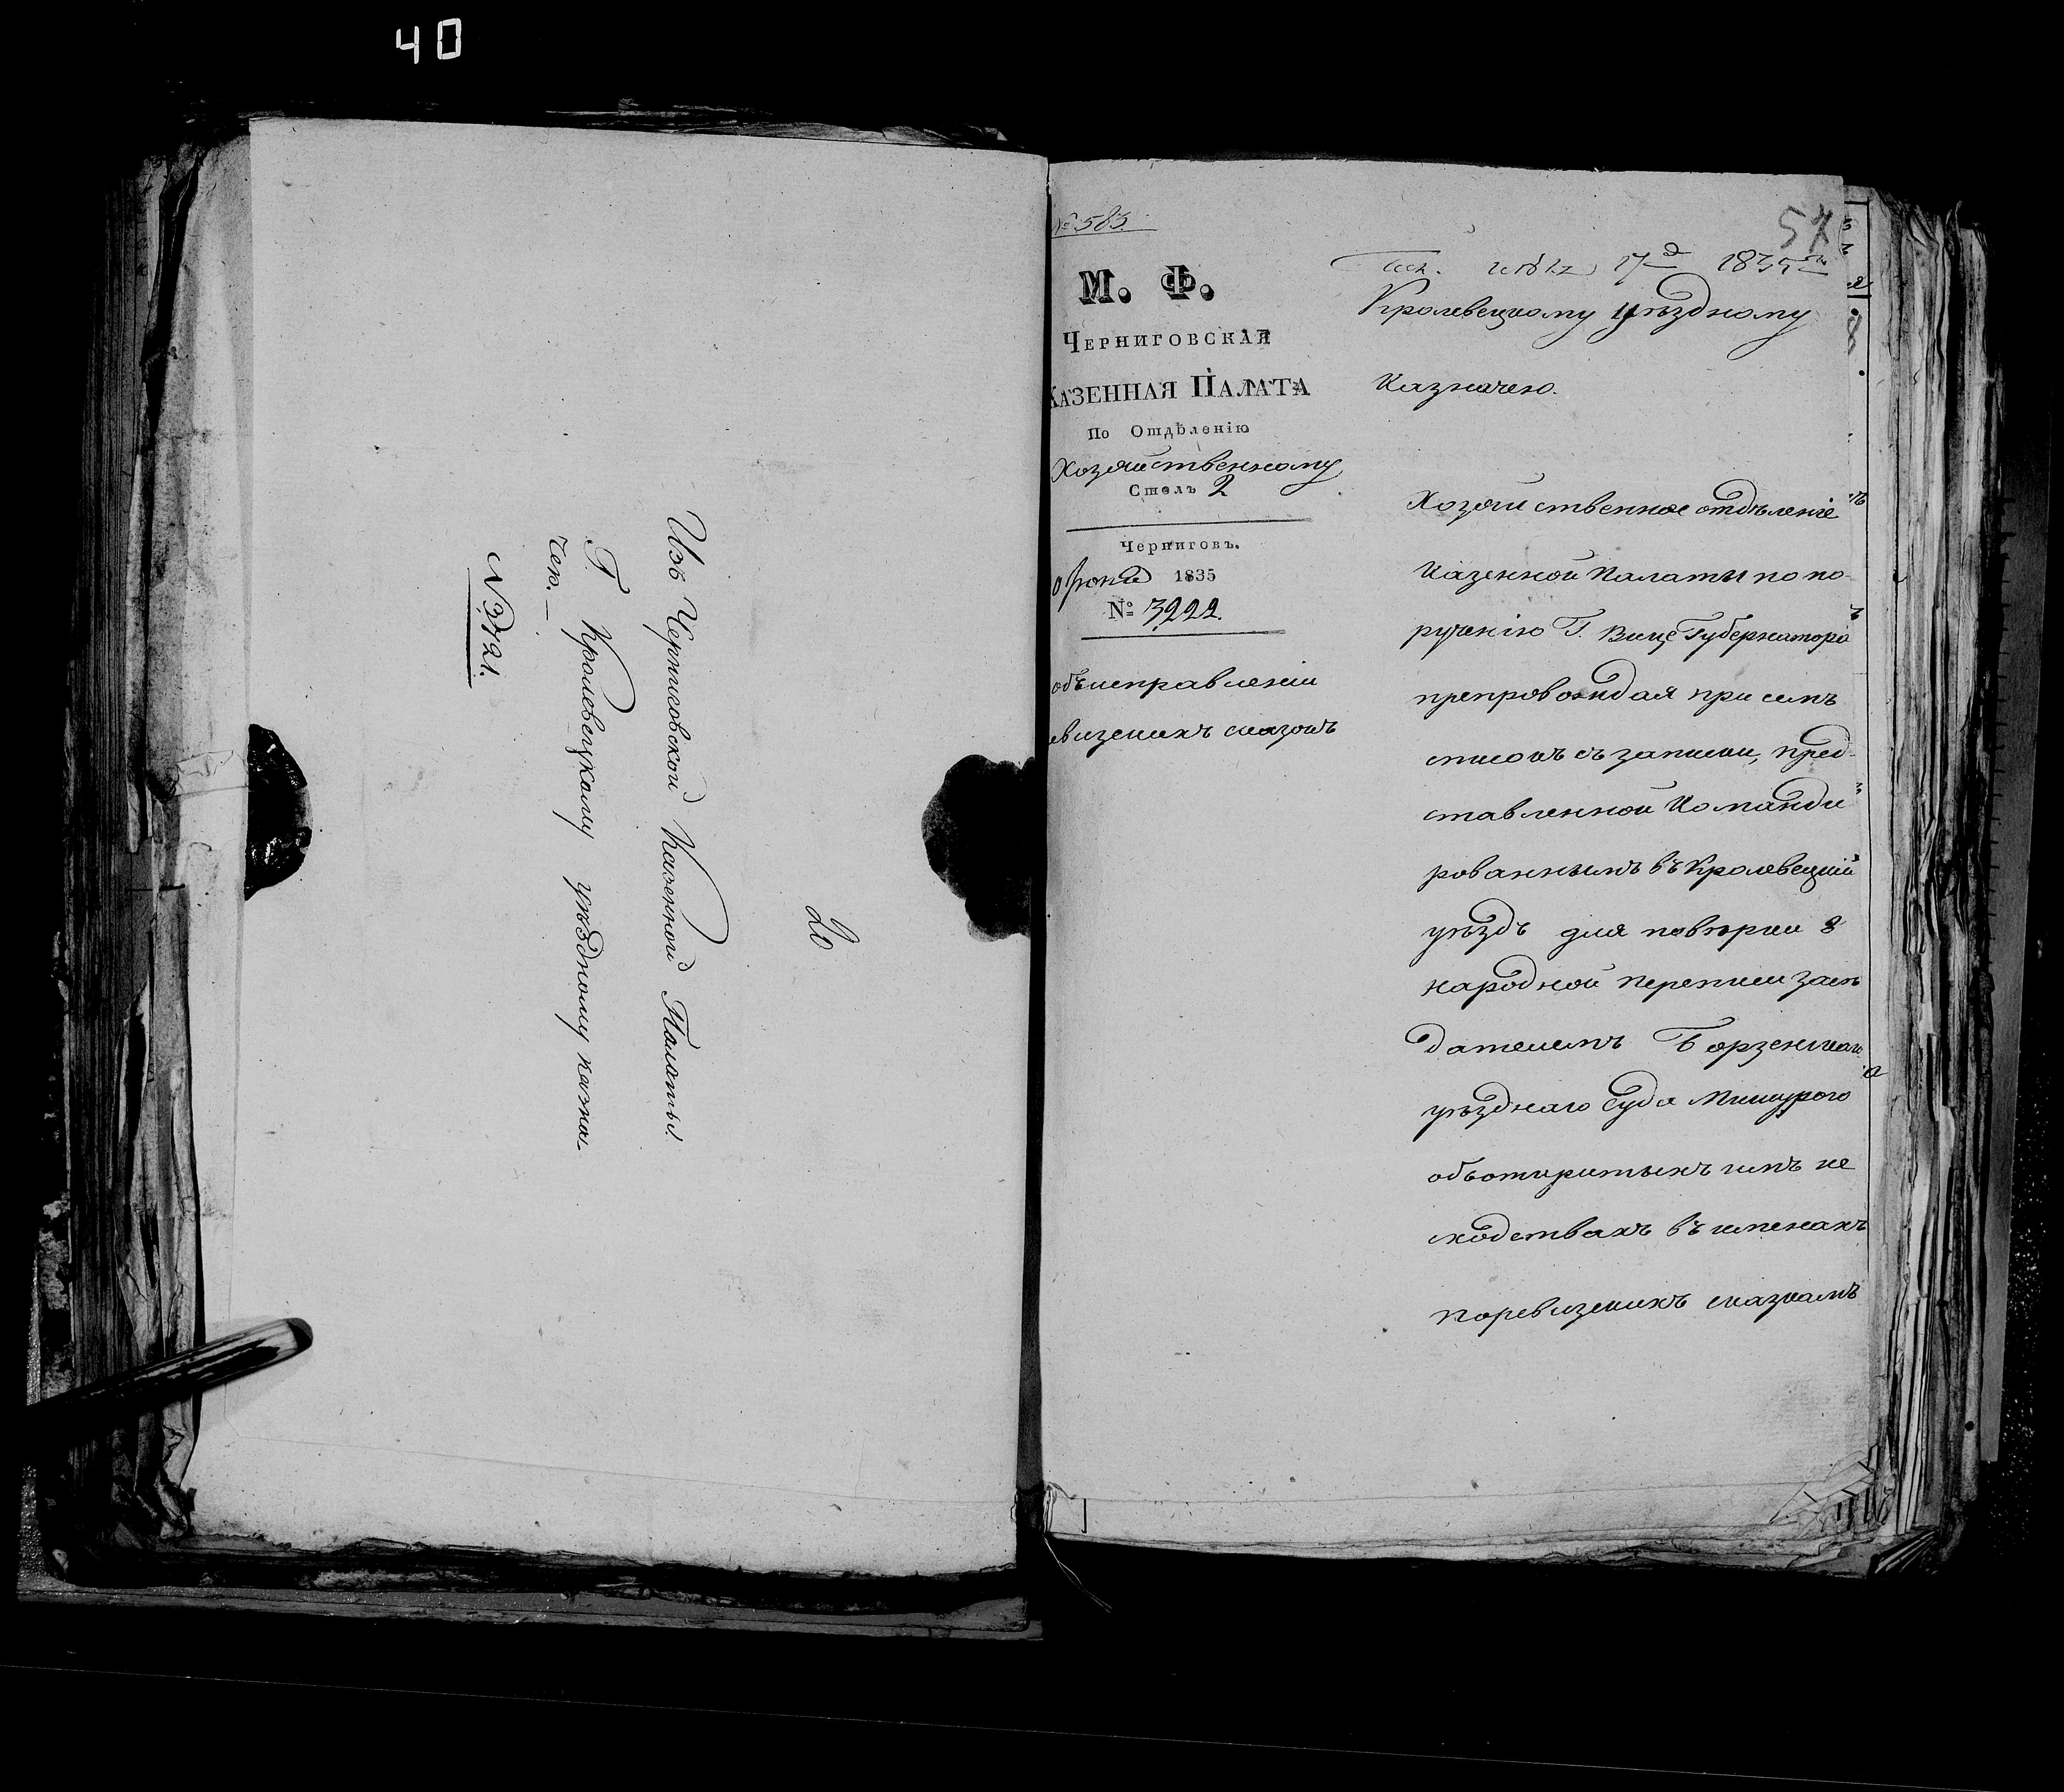 40
20
Изъ Черниговской Казенной Палаты.
Г. Кролевецкому уѣздному казна-
чею.
№ 3721.
№ 583.
57
17 1835
М. Ф.
Черниговская
Казенная Палата
По Отдѣленію
Хозяйственному
Столъ 2
Черниговъ.
Іюня 1835
№ 3222
объ исправленіи
ревизскихъ сказокъ
Кролевецкому уѣздному
Казначею.
Хозяйственное отдѣленіе
Казенной Палаты по по-
рученію Г. Вице Губернатора
препровождая при семъ
списокъ съ записки, пред-
ставленной Командии-
рованнымъ въ Кролевецкій
уѣздъ для повѣрки 8
народной переписи засѣ
дателемъ Борзенскаго
уѣзднаго Суда
объ открытыхъ имъ не
сходствахъ въ именахъ
по ревизскихъ сказкамъ